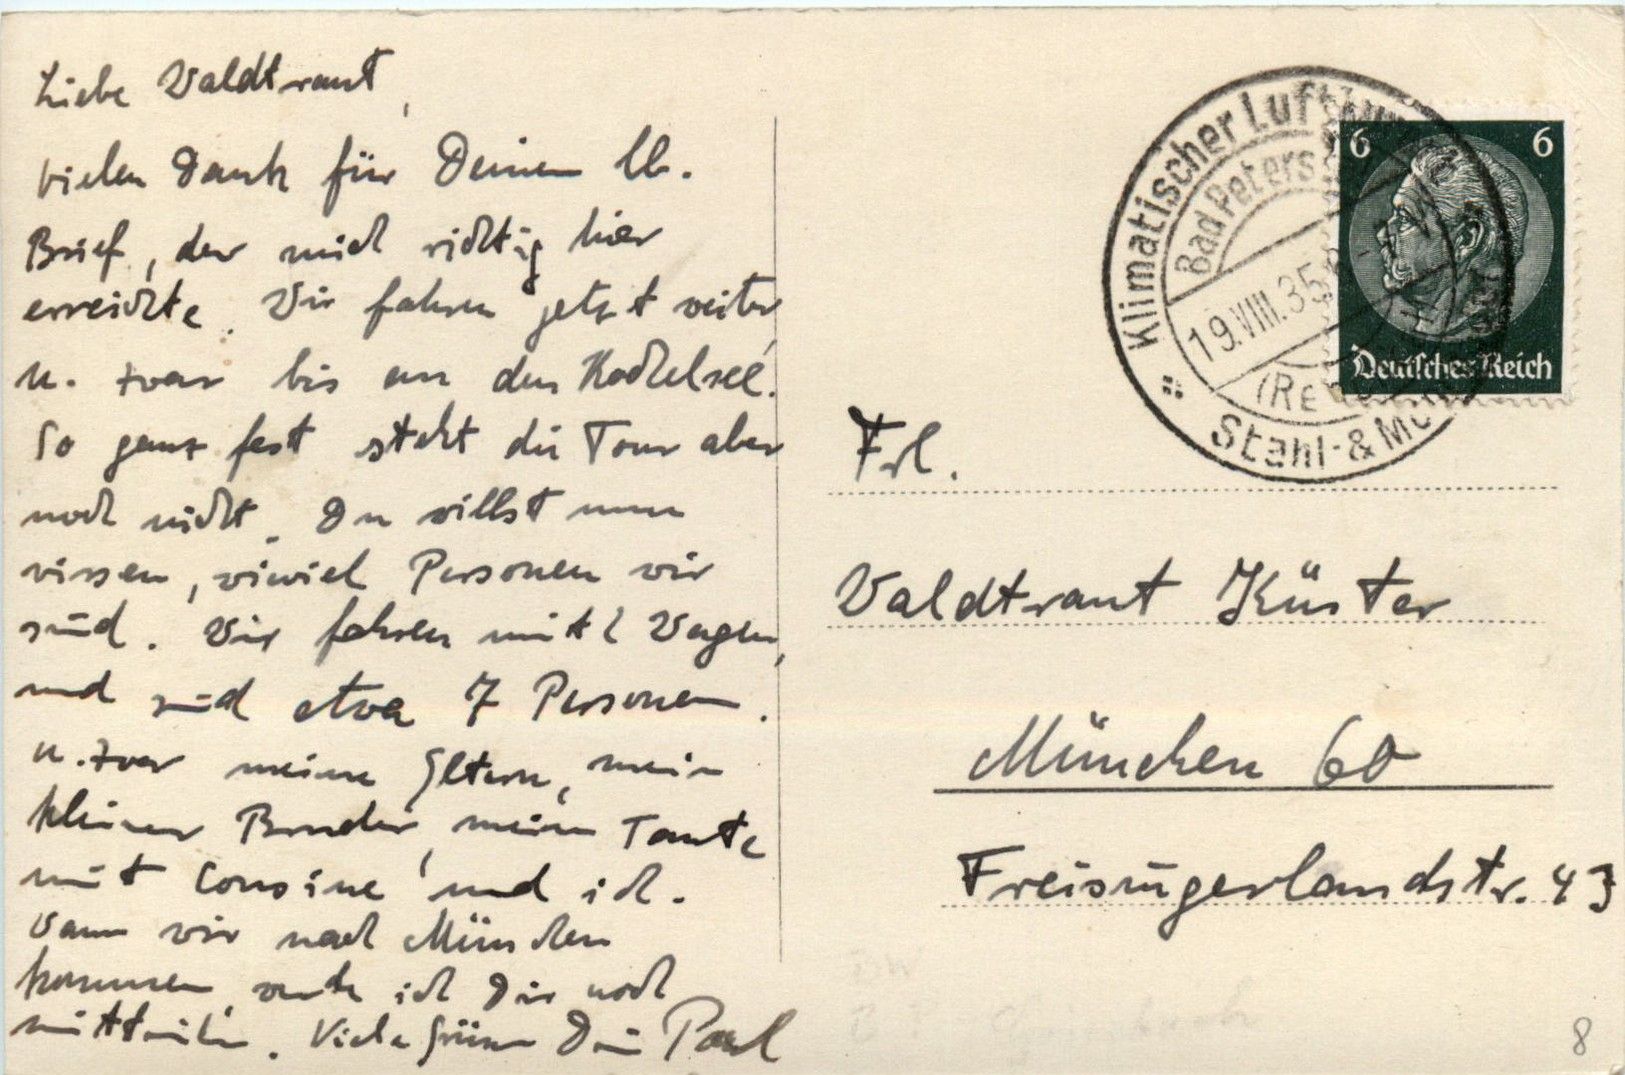 Liebe Waldtraut,
Vielen Dank für Deinen lb.
Brief, der mich richtig hier
erreichte. Wir fahren jetzt weiter
u. zwar bis an den Kochelsee.
So ganz fest steht die Tour aber
noch nicht. Du willst nun
wissen, wieviel Personen wir
sind. Wir fahren mit 2 Wagen,
und sind etwa 7 Personen.
u. zwar meine Eltern, mein
kleiner Bruder, meine Tante
mit Cousine und ich.
Wann wir nach München
kommen, werde ich Dir noch
mitteilen. Viele Grüsse Dein Paul
Klimatischer Luft
Bad Peters
19.VIII.35
(Re
Stahl- & Mo
6 6
Deutsches Reich
Frl.
Waldtraut Küster
München 60
Freisingerlandstr. 43
8